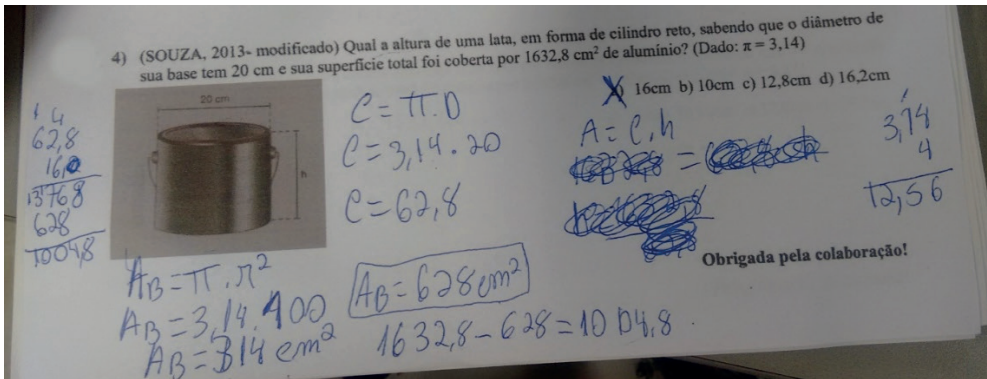 4) (SOUZA, 2013- modificado) Qual a altura de uma lata, em forma de cilindro reto, sabendo que o diâmetro de
sua base tem 20 cm e sua superfície total foi coberta por 1632,8 cm² de alumínio? (Dado: π = 3,14)
16cm b) 10cm c) 12,8cm d) 16,2cm
20 cm
h
1 4
62,8
16,0
13768
628
10048
C = π.D
C = 3,14 . 20
C = 62,8
A = C.h
3,14
4
12,56
Obrigada pela colaboração!
AB = π . r²
AB = 3,14 . 100
AB = 314 cm²
AB = 628 cm²
1632,8 - 628 = 1004,8